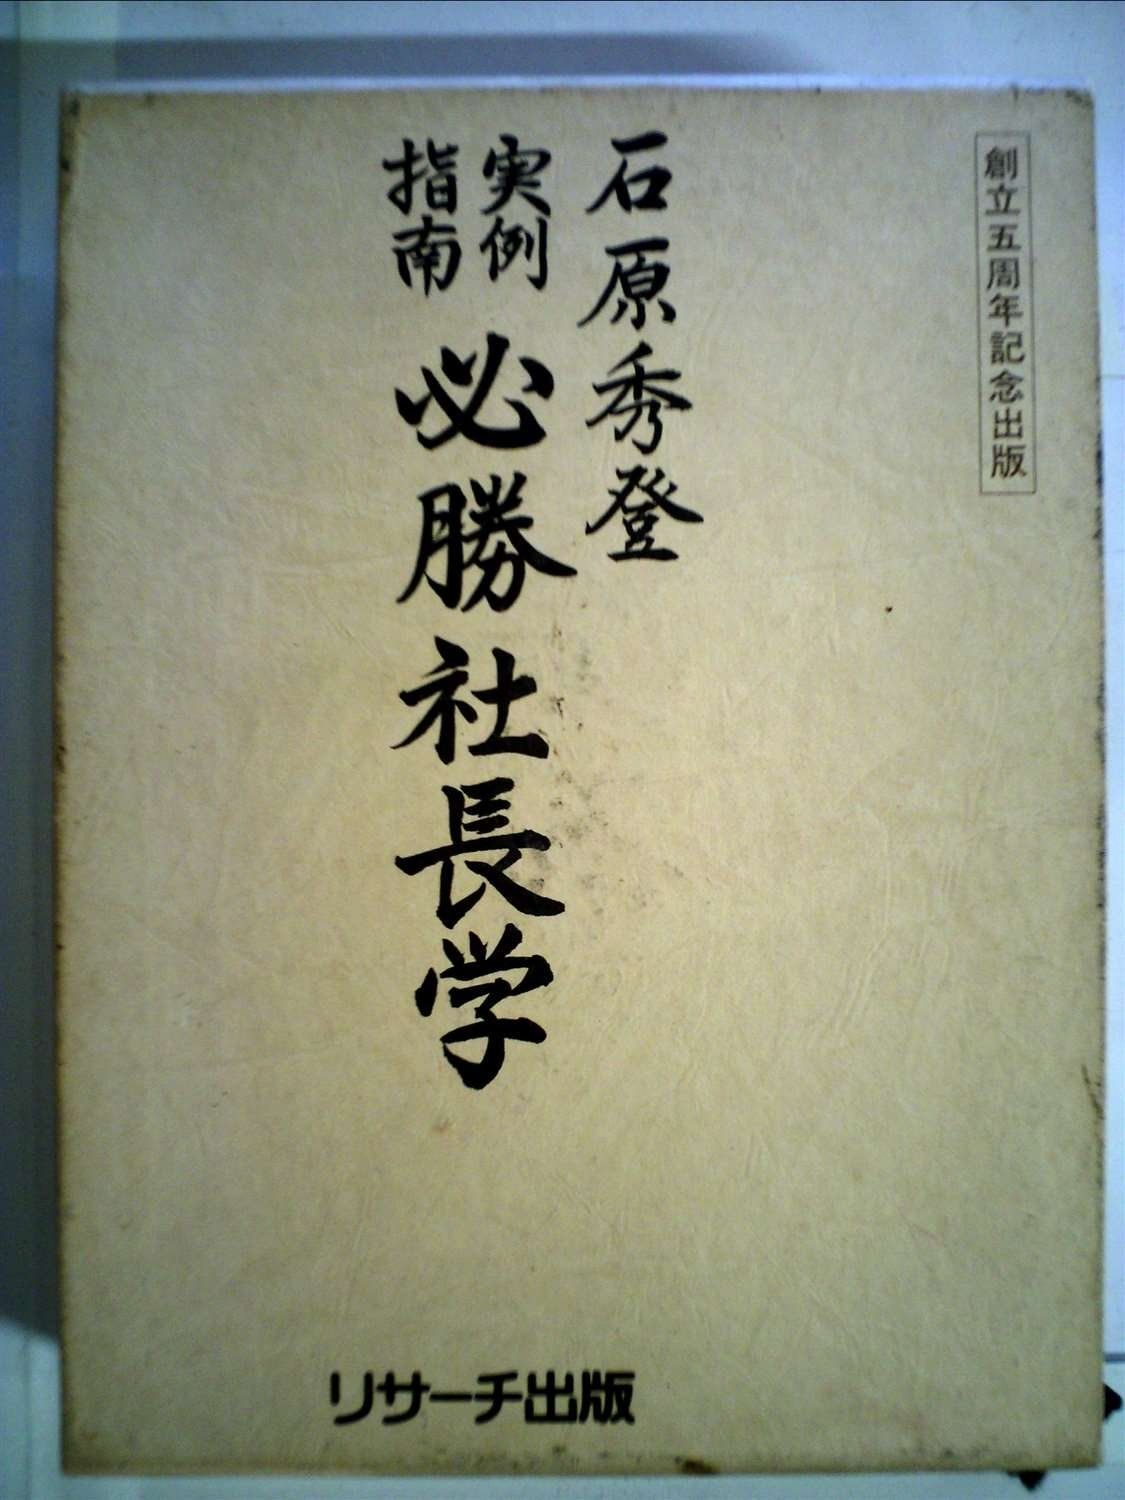 創立五周年記念出版
石原秀登
実例
指南
必勝社長学
リサーチ出版